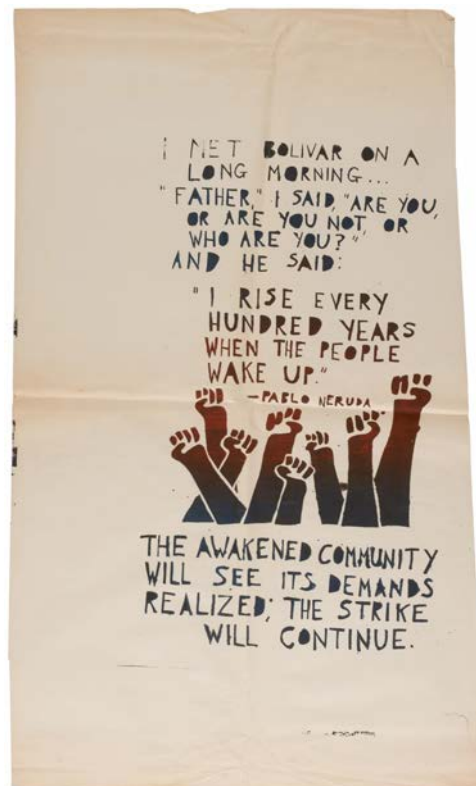 I MET BOLIVAR ON A
LONG MORNING...
"FATHER," I SAID, "ARE YOU,
OR ARE YOU NOT, OR
WHO ARE YOU?"
AND HE SAID:
"I RISE EVERY
HUNDRED YEARS
WHEN THE PEOPLE
WAKE UP."
—PABLO NERUDA
THE AWAKENED COMMUNITY
WILL SEE ITS DEMANDS
REALIZED; THE STRIKE
WILL CONTINUE.